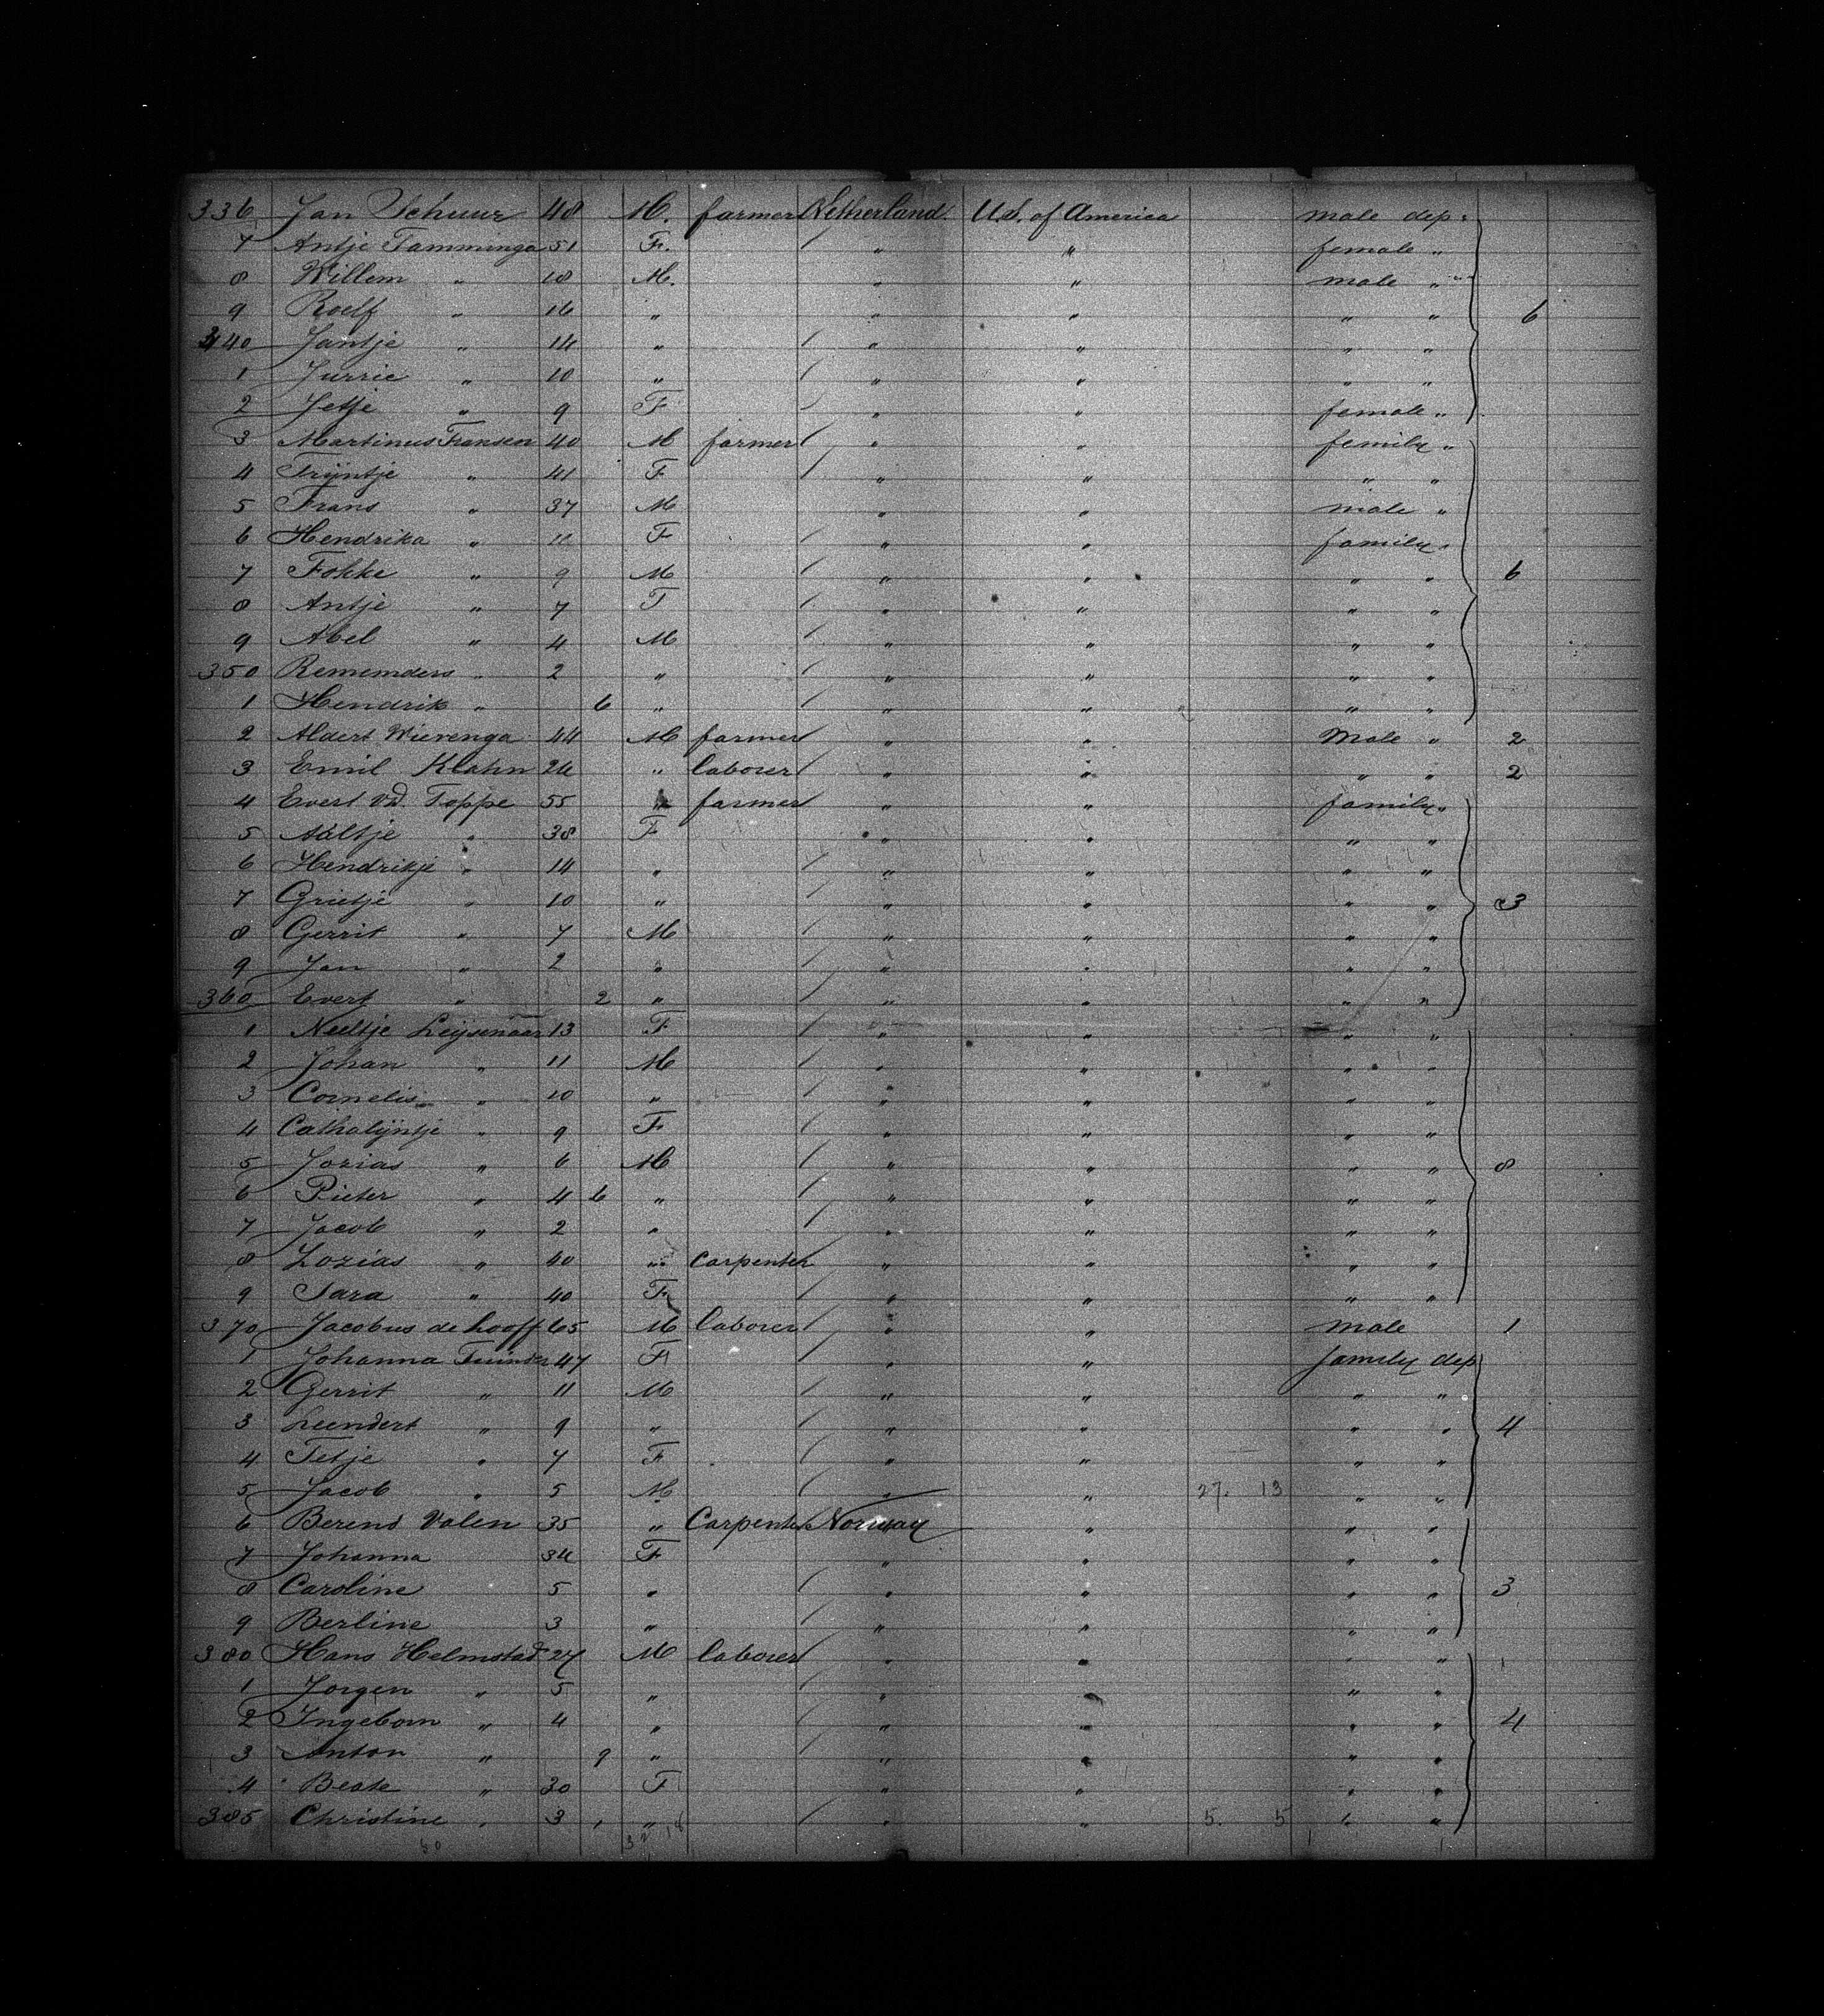 336 Jan Schuur 48 M. farmer Netherland U.S. of America male dep:
7 Antje Tamminga 51 F. " " female "
8 Willem " 18 M. " " male "
9 Roelf " 16 " " " " " 6
340 Jantje " 14 " " " " "
1 Jurrie " 10 " " " " "
2 Jetje " 9 F " " female "
3 Martinus Fransen 40 M farmer " " family "
4 Trijntje " 41 F " " " "
5 Frans " 37 M " " male "
6 Hendrika " 11 F " " family "
7 Fokke " 9 M " " " " 6
8 Antje " 7 F " " " "
9 Abel " 4 M " " " "
350 Rememders " 2 " " " " "
1 Hendrik " 6 " " " " "
2 Aldert Wierenga 44 M farmer " " Male " 2
3 Emil Klahn 24 " laborer " " " " 2
4 Evert vd Toppe 55 " farmer " " family "
5 Aaltje " 38 F " " " "
6 Hendrikje " 14 " " " " "
7 Grietje " 10 " " " " " 3
8 Gerrit " 7 M " " " "
9 Jan " 2 " " " " "
360 Evert " 2 " " " " "
1 Neeltje Leijsenaar 13 F " " " "
2 Johan " 11 M " " " "
3 Cornelis " 10 " " " " "
4 Cathalijntje " 9 F " " " "
5 Jozias " 6 M " " " " 8
6 Pieter " 4 6 " " " " "
7 Jacob " 2 " " " " "
8 Lozias " 40 " Carpenter " " " "
9 Sara " 40 F " " " "
370 Jacobus de Looff 65 M laborer " " male 1
1 Johanna Tuinder 47 F " " family dep
2 Gerrit " 11 M " " " "
3 Leendert " 9 " " " " " 4
4 Tetje " 7 F " " " "
5 Jacob " 5 M " " 27. 13 " "
6 Berend Valen 35 " Carpenter Norway " " "
7 Johanna 34 F " " " "
8 Caroline 5 " " " " " 3
9 Berline 3 " " " " "
380 Hans Helmstad 27 M laborer " " " "
1 Jorgen " 5 " " " " "
2 Ingeborn " 4 " " " " " 4
3 Anton " 9 " " " " "
4 Beate " 30 F " " " "
385 Christine " 3 " " " " 5. 5 " "
50 32 18